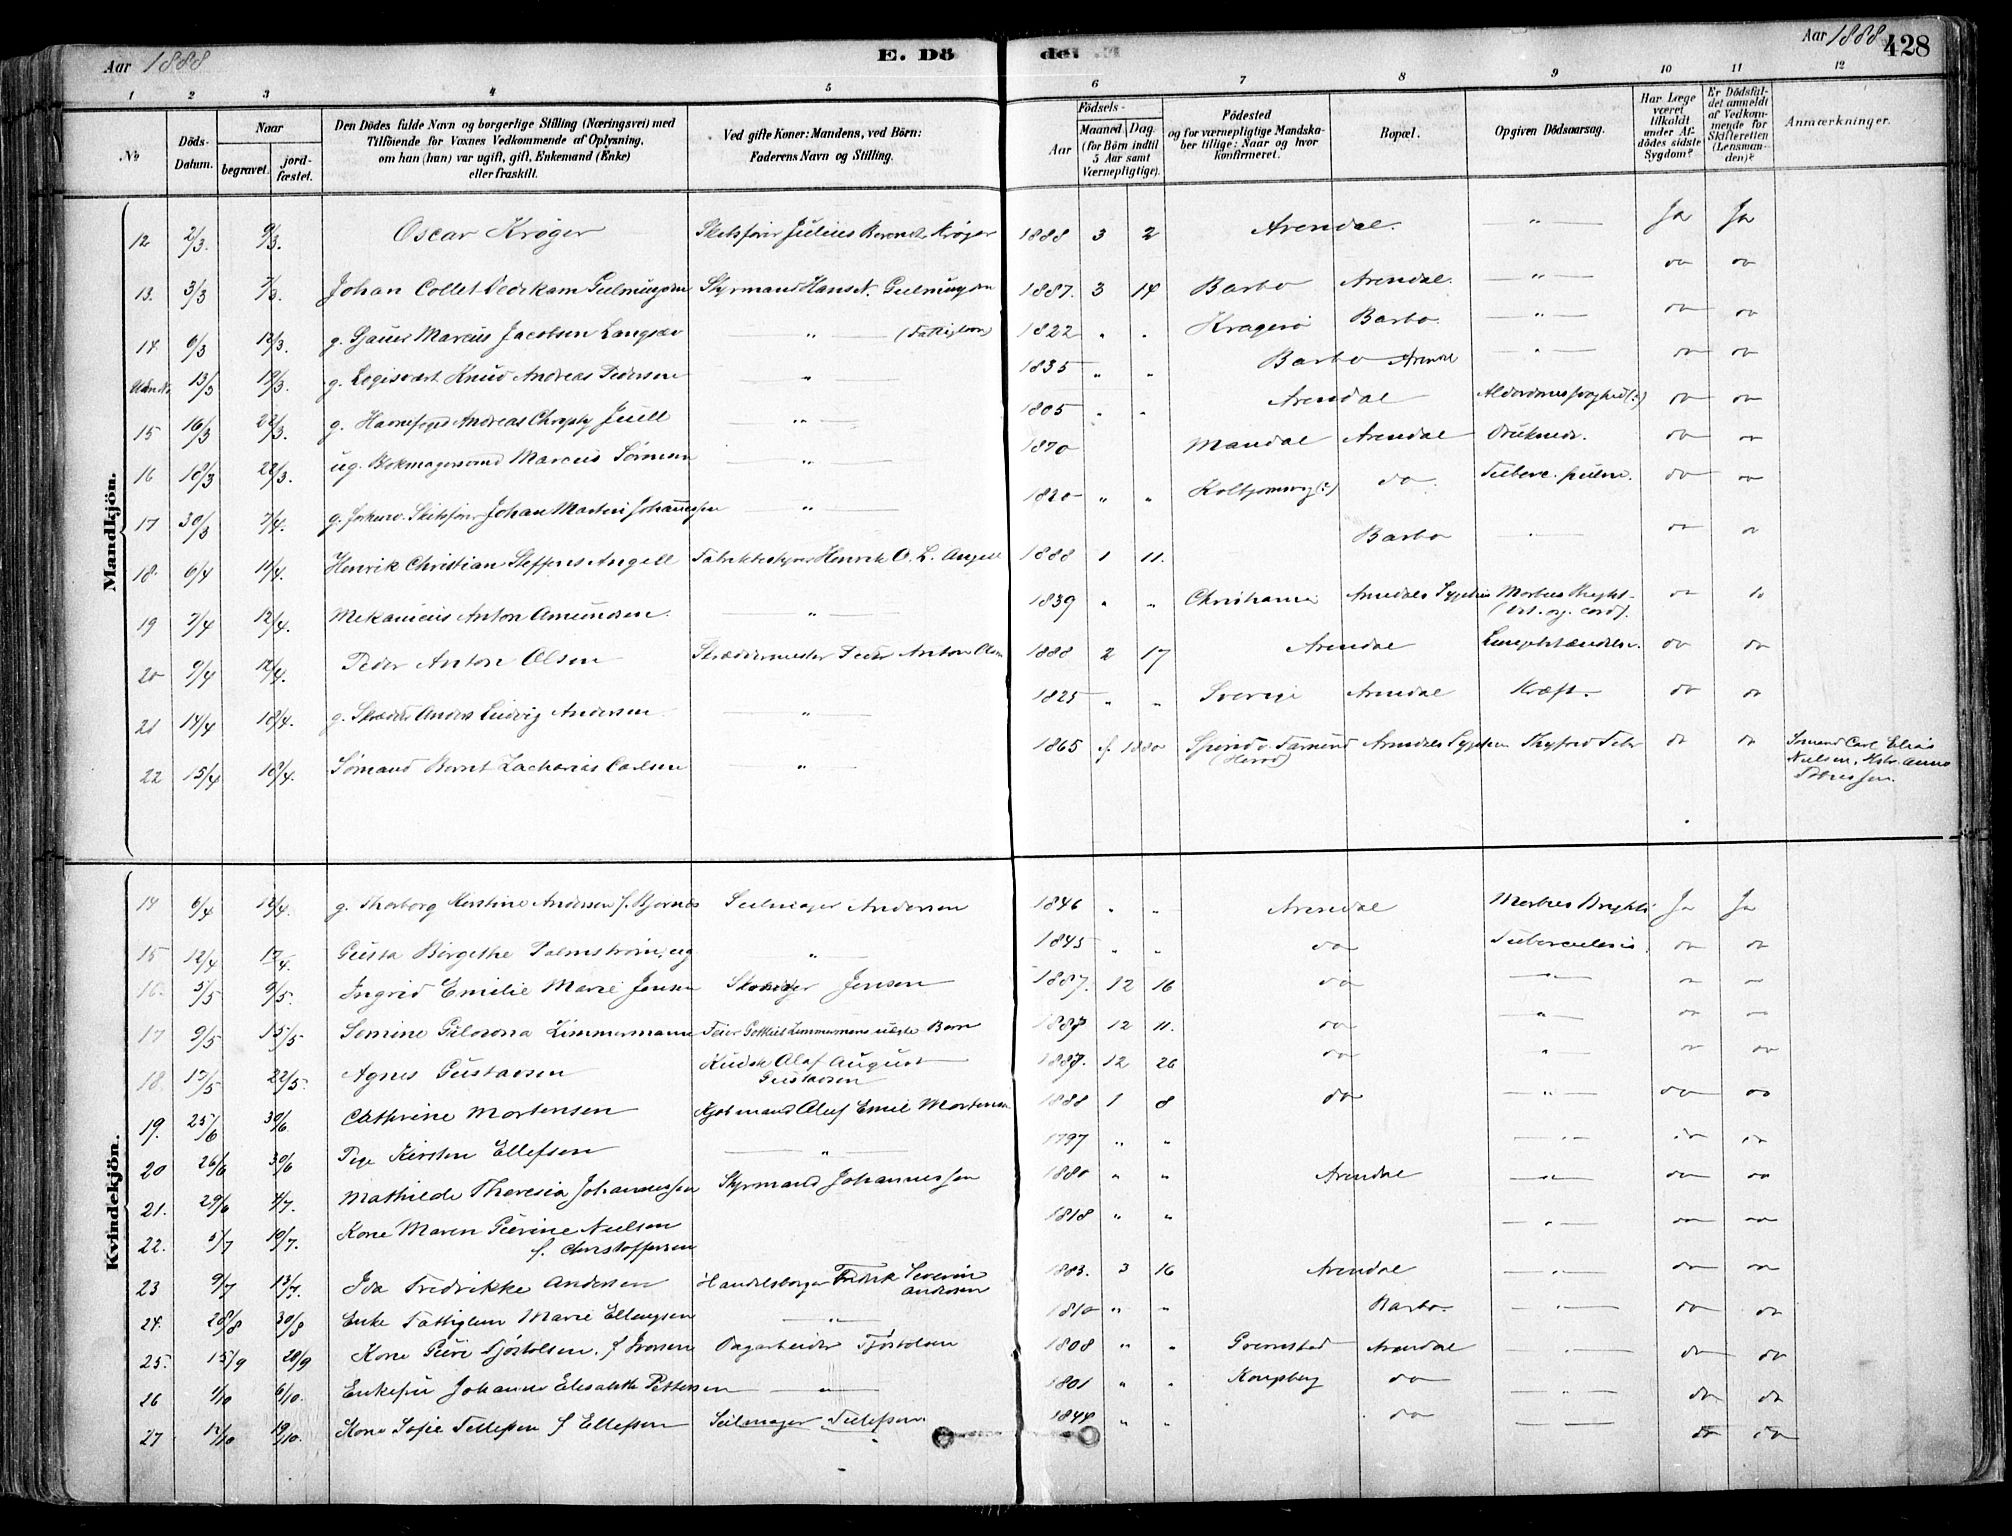 Aar 1888
E. Dö
de. E.
Aar 1888
128
1 2 3 4 5 6 7 8 9 10 11 12
№
Döds-Datum.
Naar
begravet.
jord-fæstet.
Den Dödes fulde Navn og borgerlige Stilling (Næringsvei) med
Tilföiende for Voxnes Vedkommende af Oplysning,
om han (hun) var ugift, gift, Enkemand (Enke)
eller fraskilt.
Ved gifte Koner: Mandens, ved Börn:
Faderens Navn og Stilling.
Födsels-
Aar
Maaned. Dag.
(for Börn indtil
5 Aar samt
Værnepligtige).
Födested
og for værnepligtige Mandska-
ber tillige: Naar og hvor
konfirmeret.
Bopæl.
Opgiven Dödsaarsag.
Har Læge
været
tilkaldt
under Af-
dödes sidste
Sygdom?
Er Dödsfal-
det anmeldt
af Vedkom-
mende for
Skifteretten
(Lensman-
den)?
Anmærkninger.
Mandkjön.
12 2/3. 9/3. Oscar Krøger Skibsfører Julius Berendt Krøger 1888 3 2 Arendal. " Ja Ja
13. 3/3 7/3. Johan Collet Styrmand Hans N. 1887. 3 14 Barbo Arendal. " do do
14. 6/3 12/3. g. Marcus Jacobsen Langsæv " (Fattiglem) 1822 " " Kragerø Barbo. " do do
13/3 19/3. g. Knud Andreas Pedersen " 1835 " " Barbo Arendal " do do
15 16/3 22/3. g. Havnefoged Andreas Juell " 1805 " " Arendal do do
16 18/3 22/3. ug. Marcus " 1870 Mandal Arendal Druknede. do do
17 30/3 7/4. g. Skibsfører Johan Martin Johannessen " 1820 " " do. Tuberc. pulm. do do
18. 6/4 11/4. Henrik Christian Steffens Angell Henrik O. L. Angell 1888 1 11. Barbo " do do
19 7/4 12/4. Mekanicus Anton Amundsen. " 1839 " " Christiania Arendals Sygehus Morbus Bright. do do
20 9/4 12/4. Peder Anton Olsen Skræddermester Peder Anton Olsen 1888 2 17 Arendal Lungebetændelse. do do
21 14/4 18/4. g. Skrædder Anders Ludvig Andersen. " 1825 " " Sverige Arendal Kræft. do do
22 15/4 18/4. Sømand Bernt Zacharias Carlsen " 1865 f. 1880 (Herred) Arendals Sygehus Thyfoid Feber do do Sømand Carl Elias
Nielsen,
Kvindekjön.
14 6/4 12/4. g. Thorborg Kirstine Andersen f. Bjørnes Seilmager Andersen 1846 " " Arendal Morbus Brightii Ja Ja
15 12/4 17/4. Gusta Birgithe Palmstrøm, ug " 1845 " " do Tuberculosis. do do
16. 3/5 9/5. Ingrid Emilie Marie Jensen Skomager Jensen 1887. 12 16 do " do do
17 9/5 15/5 Semine Zimmermann Feier Gottlieb Zimmermans uægte Barn 1887 12 11. do " do do
18. 13/5 22/5. Agnes Gustavsen Kudsk Olaf August
Gustavsen 1887. 12 26 do " do do
19. 25/6 30/6. Cathrine Mortensen Kjøbmand Oluf Emil Mortensen 1888 1 8 do " do do
20 26/6 30/6 Pige Kirsten Ellefsen " 1797 " " " do do
21. 29/6 4/7. Mathilde Theresia Johannessen Styrmand Johannessen 1880 " " Arendal " do do
22. 5/7 10/7. Kone Maren Pierine Nielsen
f. Christoffersen 1818 " " " do do
23 9/7 13/7. Ida Fredrikke Andersen Handelsborger Fredrik Severin
Andersen 1883. 3 16 Arendal " do do
24. 28/8 30/8 Enke Fattiglem Marie Ellingsen " 1810 " " Barbo. " do do
25. 15/9 20/9 Kone Tjøstolsen, f. Iversen Dagarbeider Tjøstolsen 1808 " " Grimstad Arendal " do do
26 1/10 6/10. Enkefru Johanne Elisabeth Pettersen " 1801 " " Kongsberg do " do do
27 12/10 19/10. Kone Sofie Tellefsen f Ellefsen Seilmager Tellefsen. 1844 " " do do do